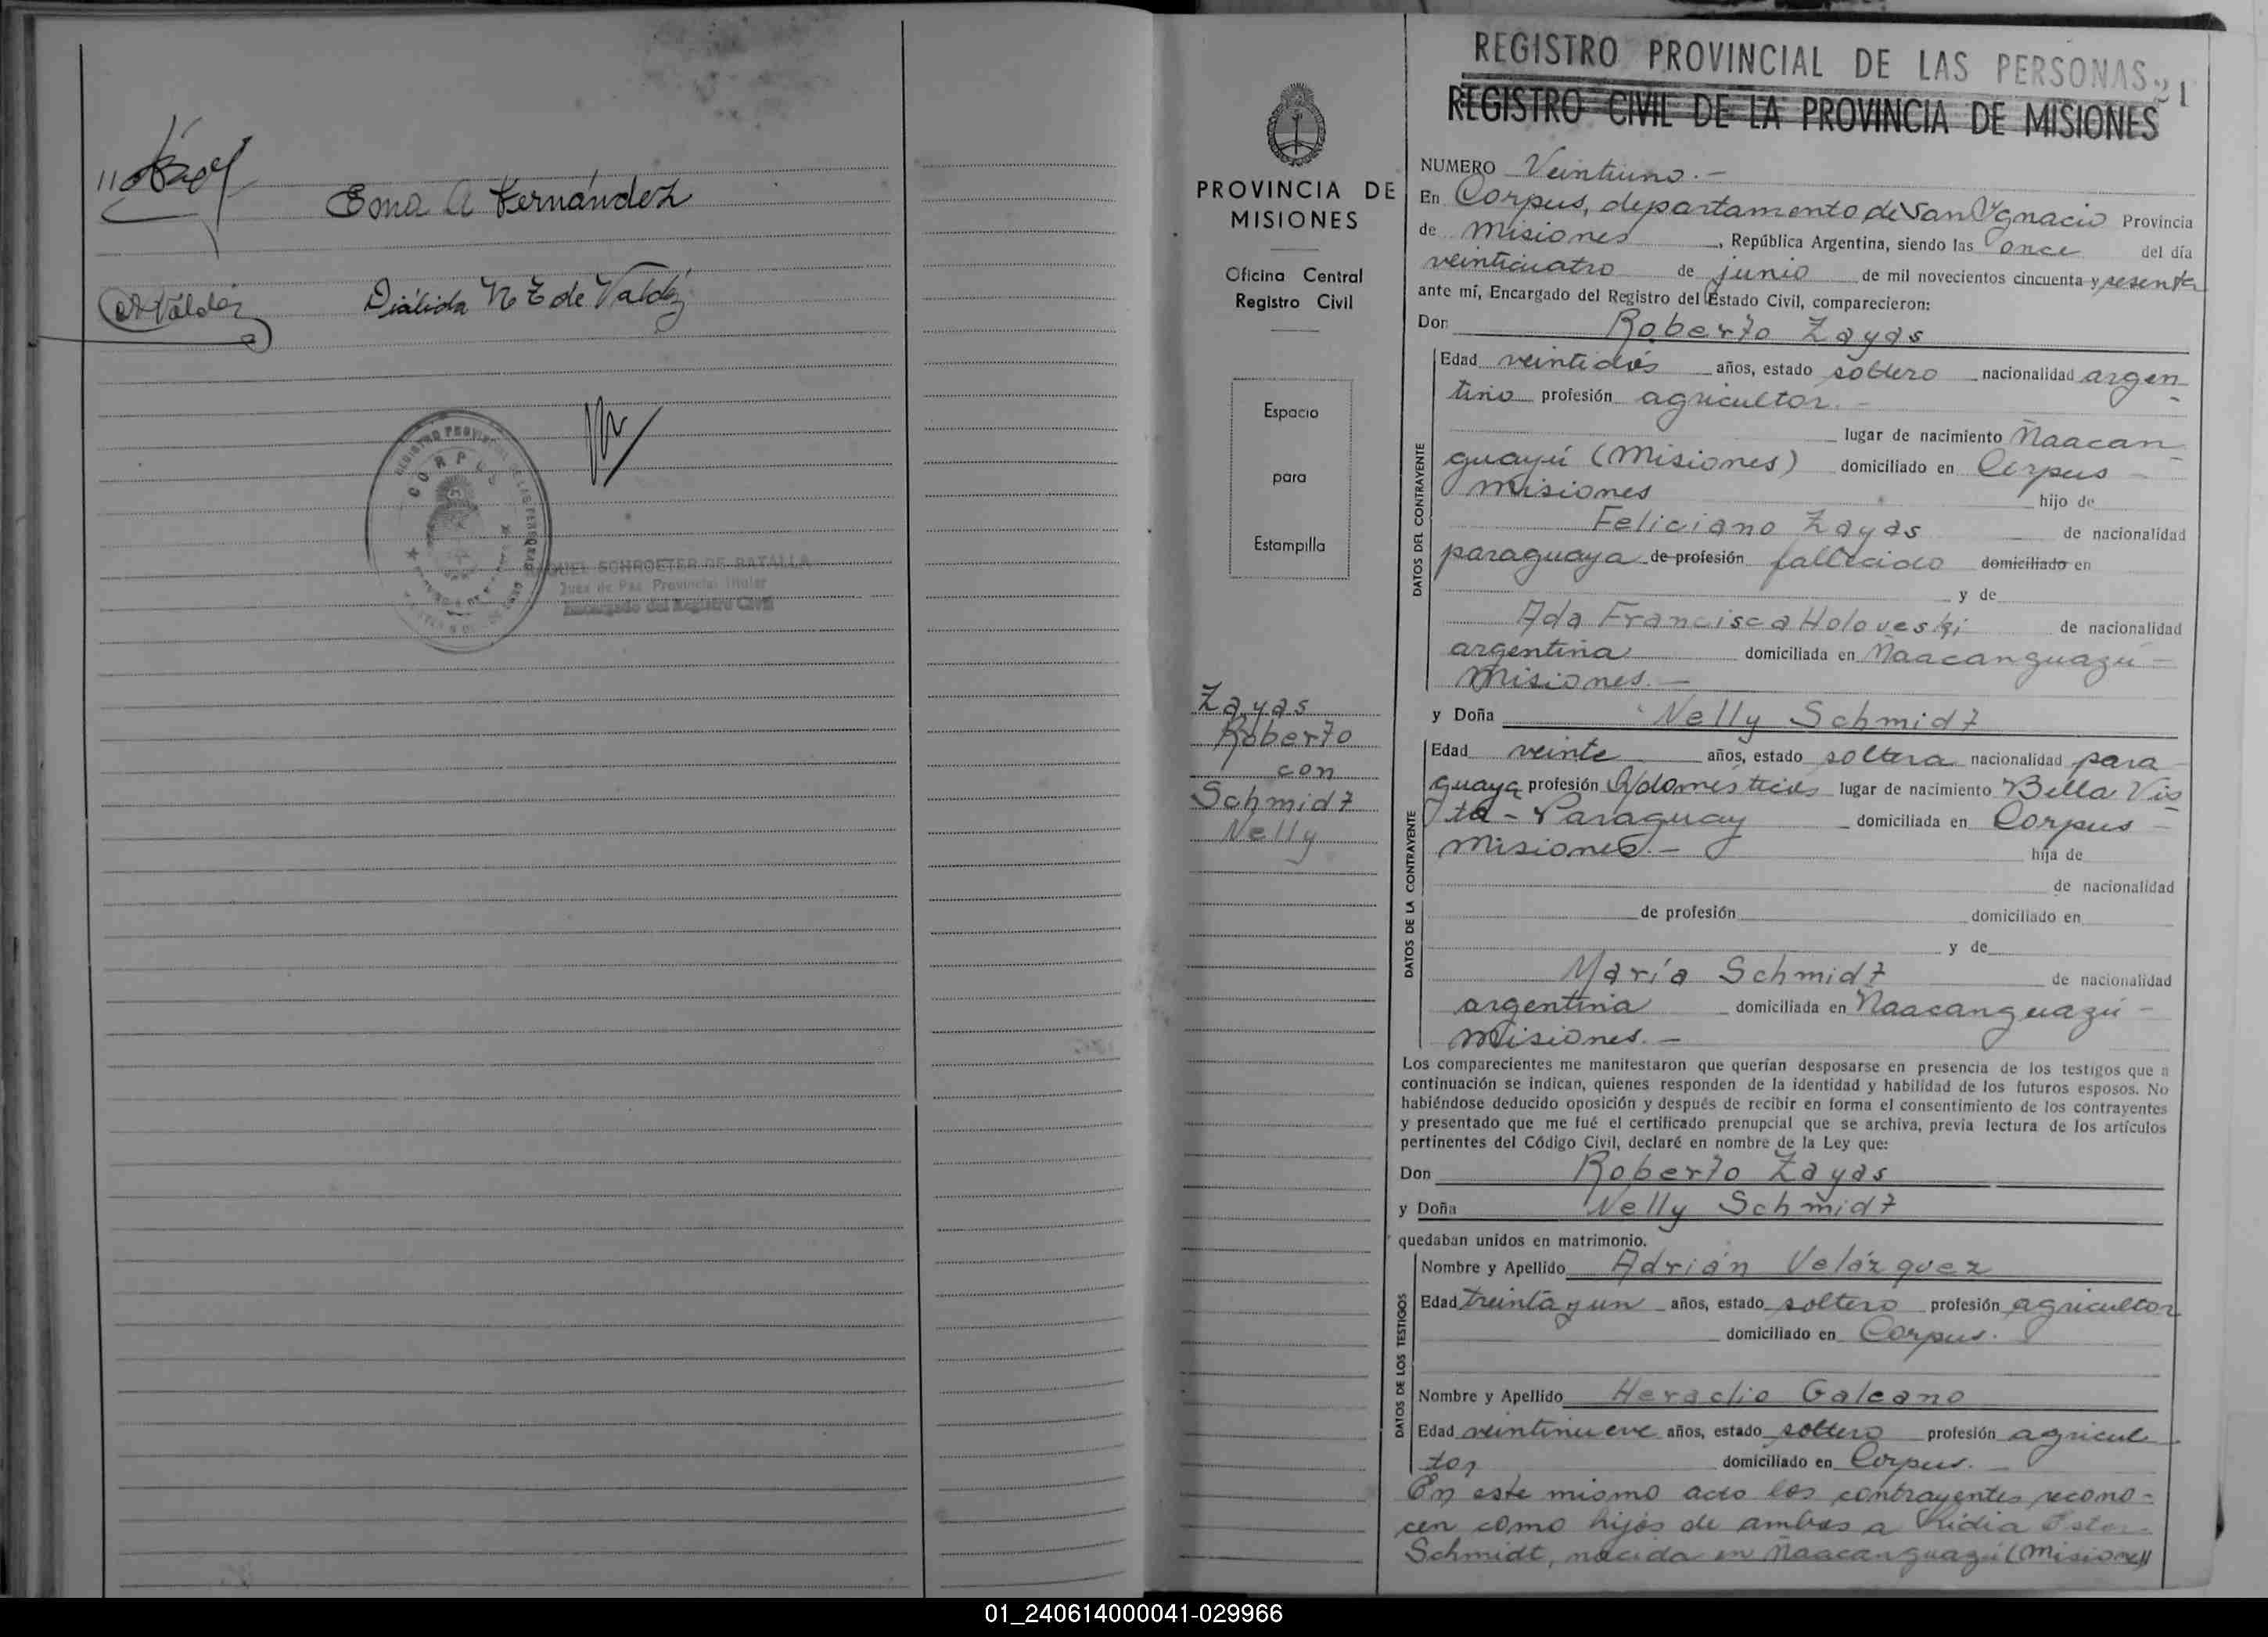 Ema A Fernández
Diálida N Z de Valdéz
CORPUS
RAQUEL SCHROETER DE BATALLA
Juez de Paz Provincial Titular
Encargado del Registro Civil
PROVINCIA DE
MISIONES
Oficina Central
Registro Civil
Espacio
para
Estampilla
Zayas
Roberto
con
Schmidt
Nelly
REGISTRO PROVINCIAL DE LAS PERSONAS
21
REGISTRO CIVIL DE LA PROVINCIA DE MISIONES
NUMERO Veintiuno.-
En Corpus, departamento de San Ygnacio Provincia
de Misiones, República Argentina, siendo las once del día
veinticuatro de junio de mil novecientos cincuenta y sesenta
ante mí, Encargado del Registro del Estado Civil, comparecieron:
Don Roberto Zayas
DATOS DEL CONTRAYENTE
Edad veintidós años, estado soltero nacionalidad argen-
tino profesión agricultor.-
lugar de nacimiento Ñaacan-
guazú (Misiones) domiciliado en Corpus -
Misiones hijo de
Feliciano Zayas de nacionalidad
paraguaya de profesión fallecido domiciliado en
y de
Ada Francisca Holoveski de nacionalidad
argentina domiciliada en Ñaacanguazú -
Misiones.-
y Doña Nelly Schmidt
DATOS DE LA CONTRAYENTE
Edad veinte años, estado soltera nacionalidad para-
guaya profesión Q/domésticos lugar de nacimiento Bella Vis-
ta - Paraguay domiciliada en Corpus -
Misiones.- hija de
de nacionalidad
de profesión domiciliado en
y de
María Schmidt de nacionalidad
argentina domiciliada en Ñaacanguazú -
Misiones.-
Los comparecientes me manifestaron que querían desposarse en presencia de los testigos que a
continuación se indican, quienes responden de la identidad y habilidad de los futuros esposos. No
habiéndose deducido oposición y después de recibir en forma el consentimiento de los contrayentes
y presentado que me fué el certificado prenupcial que se archiva, previa lectura de los artículos
pertinentes del Código Civil, declaré en nombre de la Ley que:
Don Roberto Zayas
y Doña Nelly Schmidt
quedaban unidos en matrimonio.
DATOS DE LOS TESTIGOS
Nombre y Apellido Adrián Velázquez
Edad treinta y un años, estado soltero profesión agricultor
domiciliado en Corpus.
Nombre y Apellido Heraclio Galeano
Edad veintinueve años, estado soltero profesión agricul-
tor domiciliado en Corpus.-
En este mismo acto los contrayentes recono-
cen como hijos de ambos a Lidia Ester
Schmidt, nacida en Ñaacanguazú (Misiones)
01_240614000041-029966